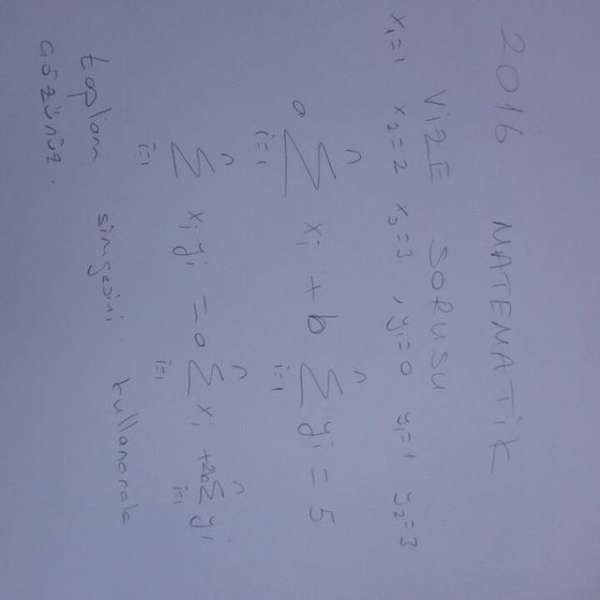 2016 MATEMATİK
VİZE SORUSU
x₁=1 x₂=2 x₃=3, y₁=0 y₁=1 y₂=3
a ∑ᵢ₌₁ⁿ xᵢ + b ∑ᵢ₌₁ⁿ yᵢ = 5
∑ᵢ₌₁ⁿ xᵢ yᵢ = a ∑ᵢ₌₁ⁿ xᵢ + 2b ∑ᵢ₌₁ⁿ yᵢ
toplam simgesini kullanarak
çözünüz.